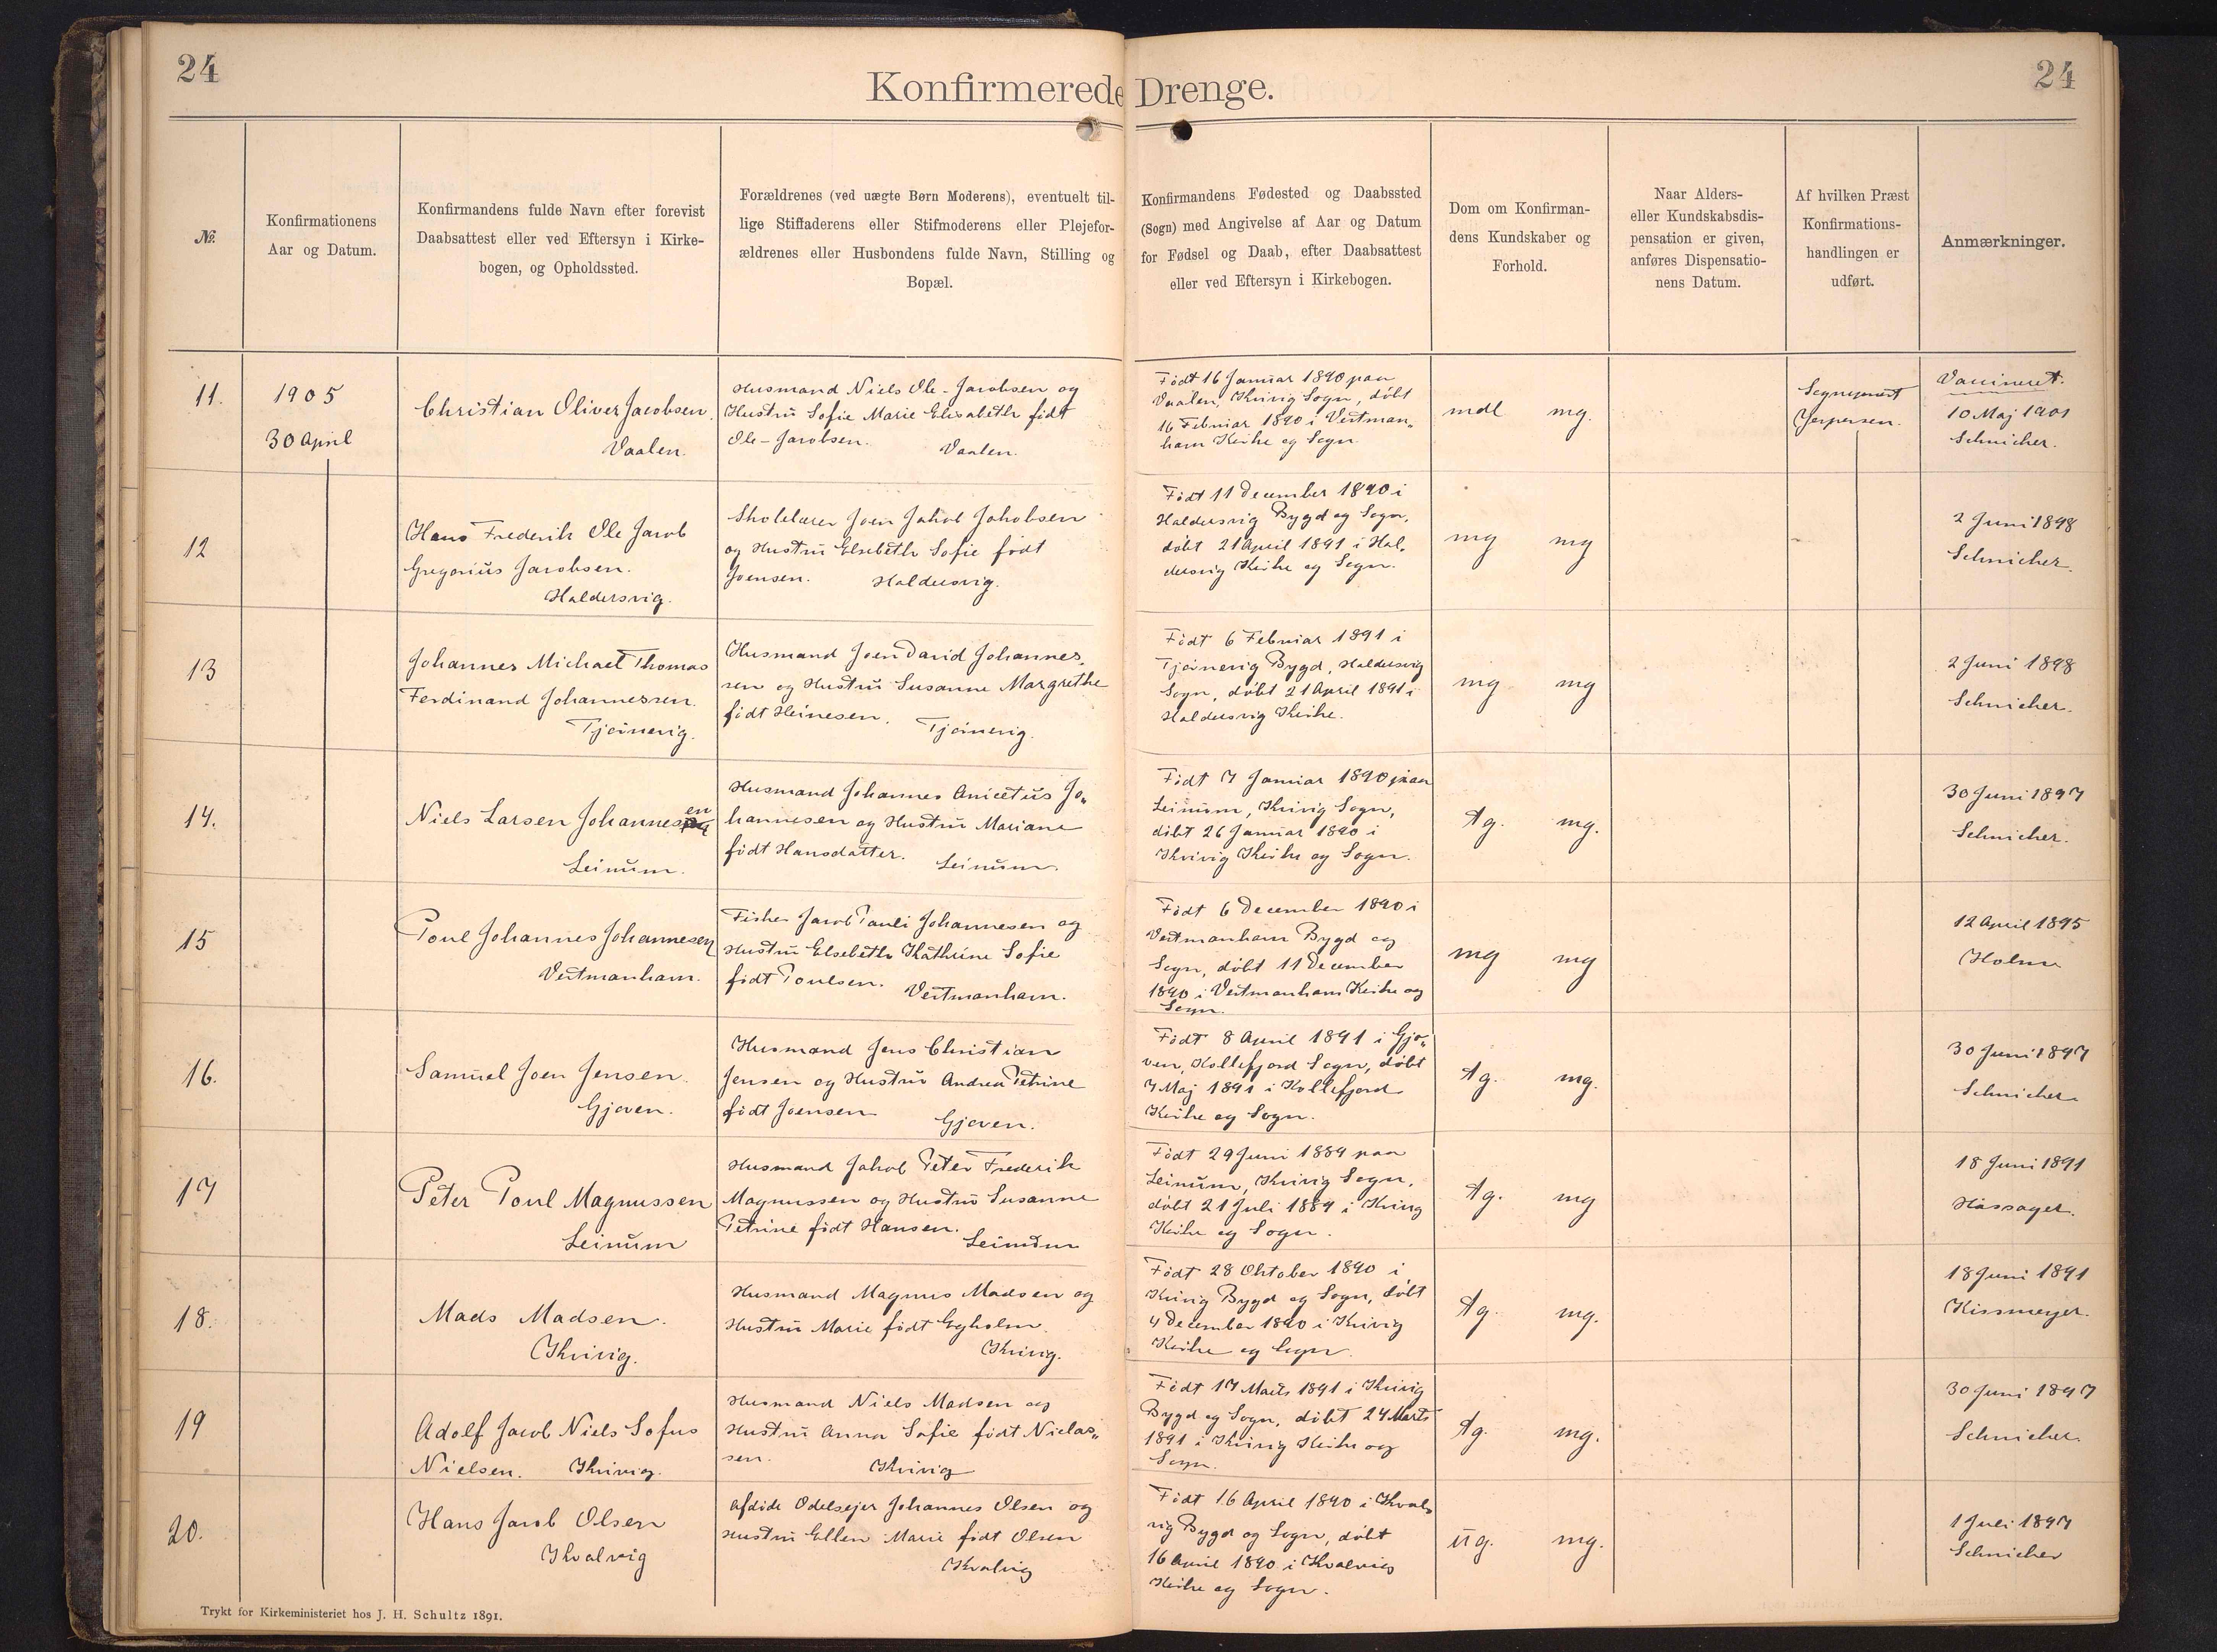 24
24
Konfirmerede Drenge.
№.
Konfirmationens
Aar og Datum.
Konfirmandens fulde Navn efter forevist
Daabsattest eller ved Eftersyn i Kirke-
bogen, og Opholdssted.
Forældrenes (ved uægte Børn Moderens), eventuelt til-
lige Stiffaderens eller Stifmoderens eller Plejefor-
ældrenes eller Husbondens fulde Navn, Stilling og
Bopæl.
Konfirmandens Fødested og Daabssted
(Sogn) med Angivelse af Aar og Datum
for Fødsel og Daab, efter Daabsattest
eller ved Eftersyn i Kirkebogen.
Dom om Konfirman-
dens Kundskaber og
Forhold.
Naar Alders-
eller Kundskabsdis-
pensation er given,
anføres Dispensatio-
nens Datum.
Af hvilken Præst
Konfirmations-
handlingen er
udført.
Anmærkninger.
11.
1905
30 April
Christian Oliver Jacobsen.
Vaalen.
Husmand Niels Ole-Jacobsen og
Hustru Sofie Marie Elisabeth født
Ole-Jacobsen.
Vaalen.
Født 16 Januar 1890 paa
Vaalen, Kvivig Sogn, døbt
16 Februar 1890 i Vestman„
ham Kirke og Sogn.
mdl mg.
Sognepræst
Jespersen.
Vaccineret.
10 Maj 1901
Schnicher.
12
Hans Frederik Ole Jacob
Gregorius Jacobsen.
Haldersvig.
Skolelærer Joen Jakob Jakobsen
og Hustru Elsebeth Sofie født
Joensen. Haldersvig.
Født 11 December 1890 i
Haldersvig Bygd og Sogn,
døbt 21 April 1891 i Hal„
dersvig Kirke og Sogn.
mg mg
2 Juni 1898
Schnicher.
13
Johannes Michael Thomas
Ferdinand Johannessen.
Tjørnevig.
Husmand Joen David Johannes„
sen og Hustru Susanne Margrethe
født Heinesen. Tjørnevig.
Født 6 Februar 1891 i
Tjørnevig Bygd, Haldersvig
Sogn, døbt 21 April 1891 i
Haldersvig Kirke.
mg mg
2 Juni 1898
Schnicher.
14.
Niels Larsen Johannesen
Leinum.
Husmand Johannes Anicetus Jo„
hannesen og Hustru Mariane
født Hansdatter. Leinum.
Født 7 Januar 1890 paa
Leinum, Kvivig Sogn,
døbt 26 Januar 1890 i
Kvivig Kirke og Sogn.
tg. mg.
30 Juni 1897
Schnicher.
15
Poul Johannes Johannesen
Vestmanham.
Fisker Jacob Pauli Johannesen og
Hustru Elsebeth Kathrine Sofie
født Poulsen. Vestmanham.
Født 6 December 1890 i
Vestmanham Bygd og
Sogn, døbt 11 December
1890 i Vestmanham Kirke og
Sogn.
mg mg
12 April 1895
Holm
16.
Samuel Joen Jensen.
Gjoven.
Husmand Jens Christian
Jensen og Hustru Andrea Petrine
født Joensen
Gjoven.
Født 8 April 1891 i Gjo„
ven, Kollefjord Sogn, døbt
7 Maj 1891 i Kollefjord
Kirke og Sogn.
tg. mg.
30 Juni 1897
Schnicher
17
Peter Poul Magnussen
Leinum
Husmand Jakob Peter Frederik
Magnussen og Hustru Susanne
Petrine født Hansen.
Leinum
Født 29 Juni 1889 paa
Leinum, Kvivig Sogn,
døbt 21 Juli 1889 i Kvivig
Kirke og Sogn.
tg. mg
18 Juni 1891
18.
Mads Madsen.
Kvivig.
Husmand Magnus Madsen og
Hustru Marie født Egholm.
Kvivig.
Født 28 Oktober 1890 i
Kvivig Bygd og Sogn, døbt
4 December 1890 i Kvivig
Kirke og Sogn.
tg. mg.
18 Juni 1891
Kissmeyer.
19
Adolf Jacob Niels Sofus
Nielsen. Kvivig.
Husmand Niels Madsen og
Hustru Anna Sofie født Niclas„
sen.
Kvivig
Født 17 Marts 1891 i Kvivig
Bygd og Sogn, døbt 24 Marts
1891 i Kvivig Kirke og
Sogn.
tg. mg.
30 Juni 1897
Schnicher.
20.
Hans Jacob Olsen
Kvalvig
Afdøde Odelsejer Johannes Olsen og
Hustru Ellen Marie født Olsen
Kvalvig
Født 16 April 1890 i Kval„
vig Bygd og Sogn, døbt
16 April 1890 i Kvalvig
Kirke og Sogn.
ug. mg.
1 Juli 1897
Schnicher
Trykt for Kirkeministeriet hos J. H. Schultz 1891.